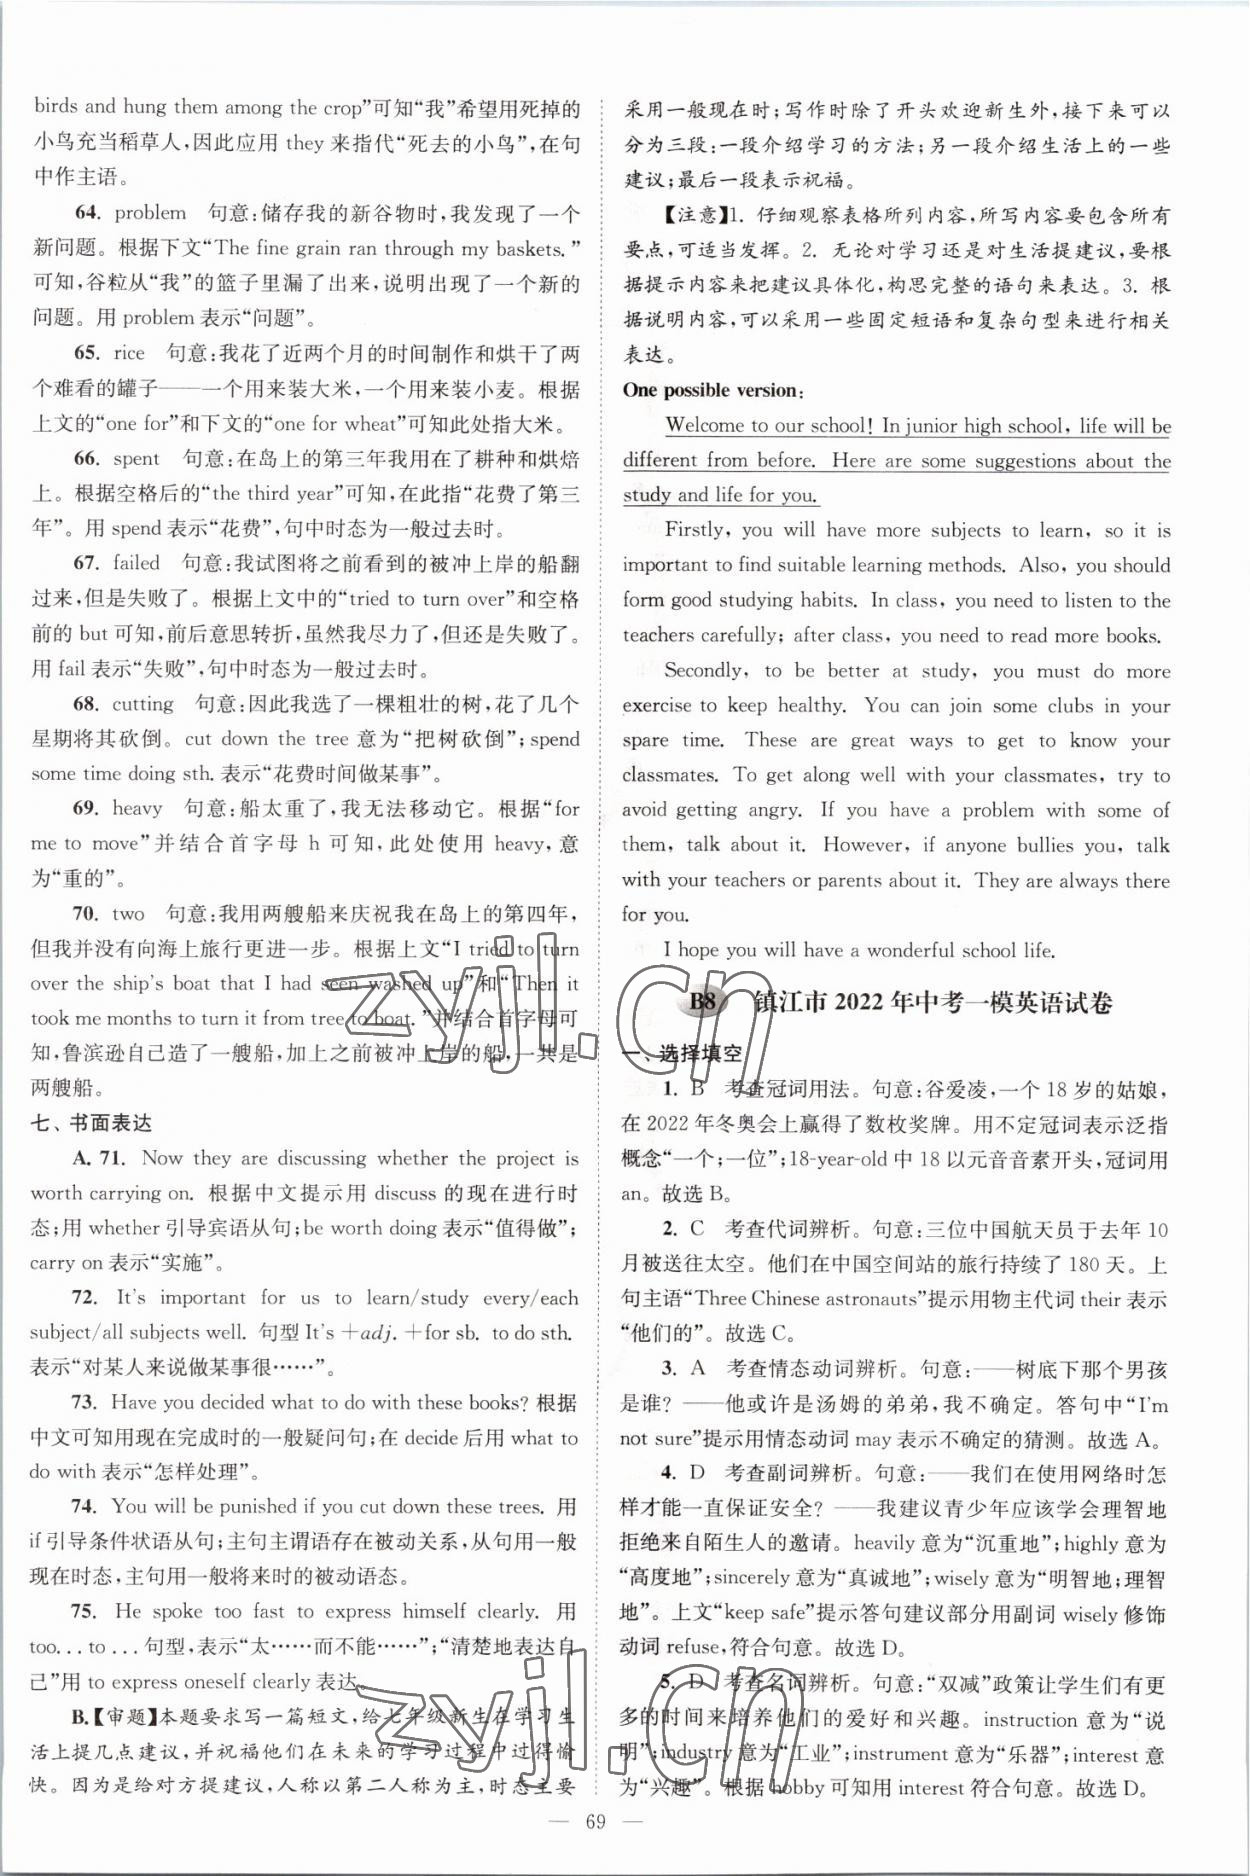 birds and hung them among the crop”可知“我”希望用死掉的
小鸟充当稻草人,因此应用 they 来指代“死去的小鸟”,在句
中作主语。
64. problem 句意:储存我的新谷物时,我发现了一个
新问题。根据下文“The fine grain ran through my baskets.”
可知,谷粒从“我”的篮子里漏了出来,说明出现了一个新的
问题。用 problem 表示“问题”。
65. rice 句意:我花了近两个月的时间制作和烘干了两
个难看的罐子——一个用来装大米,一个用来装小麦。根据
上文的“one for”和下文的“one for wheat”可知此处指大米。
66. spent 句意:在岛上的第三年我用在了耕种和烘焙
上。根据空格后的“the third year”可知,在此指“花费了第三
年”。用 spend 表示“花费”,句中时态为一般过去时。
67. failed 句意:我试图将之前看到的被冲上岸的船翻
过来,但是失败了。根据上文中的“tried to turn over”和空格
前的 but 可知,前后意思转折,虽然我尽力了,但还是失败了。
用 fail 表示“失败”,句中时态为一般过去时。
68. cutting 句意:因此我选了一棵粗壮的树,花了几个
星期将其砍倒。cut down the tree 意为“把树砍倒”;spend
some time doing sth. 表示“花费时间做某事”。
69. heavy 句意:船太重了,我无法移动它。根据“for
me to move”并结合首字母 h 可知,此处使用 heavy,意
为“重的”。
70. two 句意:我用两艘船来庆祝我在岛上的第四年,
但我并没有向海上旅行更进一步。根据上文“I tried to turn
over the ship's boat that I had seen washed up”和“Then it
took me months to turn it from tree to boat.”并结合首字母可
知,鲁滨逊自己造了一艘船,加上之前被冲上岸的船,一共是
两艘船。
七、书面表达
A. 71. Now they are discussing whether the project is
worth carrying on. 根据中文提示用 discuss 的现在进行时
态;用 whether 引导宾语从句;be worth doing 表示“值得做”;
carry on 表示“实施”。
72. It's important for us to learn/study every/each
subject/all subjects well. 句型 It's +adj. +for sb. to do sth.
表示“对某人来说做某事很……”。
73. Have you decided what to do with these books? 根据
中文可知用现在完成时的一般疑问句;在 decide 后用 what to
do with 表示“怎样处理”。
74. You will be punished if you cut down these trees. 用
if 引导条件状语从句;主句主谓语存在被动关系,从句用一般
现在时态,主句用一般将来时的被动语态。
75. He spoke too fast to express himself clearly. 用
too... to ... 句型,表示“太……而不能……”;“清楚地表达自
己”用 to express oneself clearly 表达。
B.【审题】本题要求写一篇短文,给七年级新生在学习生
活上提几点建议,并祝福他们在未来的学习过程中过得愉
快。因为是给对方提建议,人称以第二人称为主,时态主要
采用一般现在时;写作时除了开头欢迎新生外,接下来可以
分为三段:一段介绍学习的方法;另一段介绍生活上的一些
建议;最后一段表示祝福。
【注意】1. 仔细观察表格所列内容,所写内容要包含所有
要点,可适当发挥。2. 无论对学习还是对生活提建议,要根
据提示内容来把建议具体化,构思完整的语句来表达。3. 根
据说明内容,可以采用一些固定短语和复杂句型来进行相关
表达。
One possible version:
Welcome to our school! In junior high school, life will be
different from before. Here are some suggestions about the
study and life for you.
Firstly, you will have more subjects to learn, so it is
important to find suitable learning methods. Also, you should
form good studying habits. In class, you need to listen to the
teachers carefully; after class, you need to read more books.
Secondly, to be better at study, you must do more
exercise to keep healthy. You can join some clubs in your
spare time. These are great ways to get to know your
classmates. To get along well with your classmates, try to
avoid getting angry. If you have a problem with some of
them, talk about it. However, if anyone bullies you, talk
with your teachers or parents about it. They are always there
for you.
I hope you will have a wonderful school life.
B8 镇江市 2022 年中考一模英语试卷
一、选择填空
1. B 考查冠词用法。句意:谷爱凌,一个 18 岁的姑娘,
在 2022 年冬奥会上赢得了数枚奖牌。用不定冠词表示泛指
概念“一个;一位”;18-year-old 中 18 以元音音素开头,冠词用
an。故选 B。
2. C 考查代词辨析。句意:三位中国航天员于去年 10
月被送往太空。他们在中国空间站的旅行持续了 180 天。上
句主语“Three Chinese astronauts”提示用物主代词 their 表示
“他们的”。故选 C。
3. A 考查情态动词辨析。句意:——树底下那个男孩
是谁? ——他或许是汤姆的弟弟,我不确定。答句中“I'm
not sure”提示用情态动词 may 表示不确定的猜测。故选 A。
4. D 考查副词辨析。句意:——我们在使用网络时怎
样才能一直保证安全? ——我建议青少年应该学会理智地
拒绝来自陌生人的邀请。heavily 意为“沉重地”;highly 意为
“高度地”;sincerely 意为“真诚地”;wisely 意为“明智地;理智
地”。上文“keep safe”提示答句建议部分用副词 wisely 修饰
动词 refuse,符合句意。故选 D。
5. D 考查名词辨析。句意:“双减”政策让学生们有更
多的时间来培养他们的爱好和兴趣。instruction 意为“说
明”;industry 意为“工业”;instrument 意为“乐器”;interest 意
为“兴趣”。根据 hobby 可知用 interest 符合句意。故选 D。
— 69 —
zyjl.cn
zyjl.cn